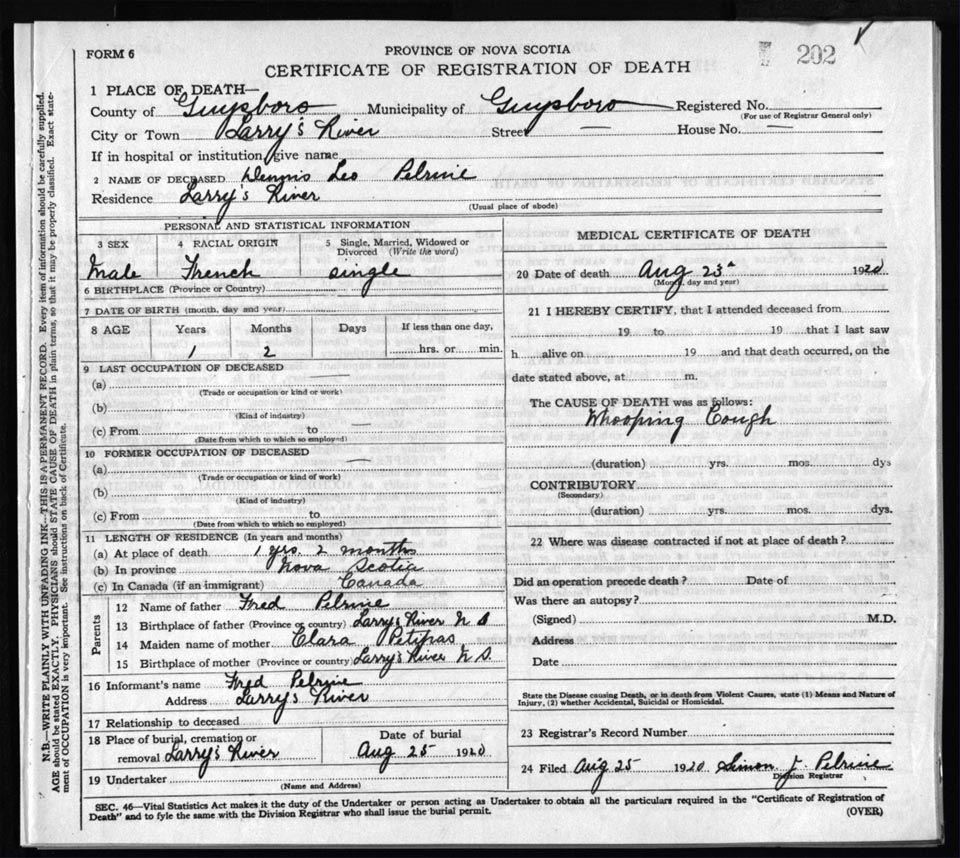 FORM 6
PROVINCE OF NOVA SCOTIA
202
CERTIFICATE OF REGISTRATION OF DEATH
1 PLACE OF DEATH—
County of Guysboro Municipality of Guysboro Registered No.
(For use of Registrar General only)
City or Town Larry's River Street — House No. —
If in hospital or institution, give name
2 NAME OF DECEASED Dennis Leo Pelrine
Residence Larry's River
(Usual place of abode)
PERSONAL AND STATISTICAL INFORMATION
3 SEX 4 RACIAL ORIGIN 5 Single, Married, Widowed or Divorced (Write the word)
Male French single
6 BIRTHPLACE (Province or Country)
7 DATE OF BIRTH (month, day and year)
8 AGE Years Months Days If less than one day,
1 2 hrs. or min.
9 LAST OCCUPATION OF DECEASED
(a) —
(Trade or occupation or kind of work)
(b)
(Kind of industry)
(c) From to —
(Date from which to which so employed)
10 FORMER OCCUPATION OF DECEASED
(a) —
(Trade or occupation or kind of work)
(b)
(Kind of industry)
(c) From to
(Date from which to which so employed)
11 LENGTH OF RESIDENCE (In years and months)
(a) At place of death 1 yrs. 2 months
(b) In province Nova Scotia
(c) In Canada (if an immigrant) Canada
Parents
12 Name of father Fred Pelrine
13 Birthplace of father (Province or country) Larry's River N S
14 Maiden name of mother Clara Petipas
15 Birthplace of mother (Province or country) Larry's River N S.
16 Informant's name Fred Pelrine
Address Larry's River
17 Relationship to deceased
18 Place of burial, cremation or removal Larry's River
Date of burial
Aug 25 1920
19 Undertaker
(Name and Address)
MEDICAL CERTIFICATE OF DEATH
20 Date of death Aug 23 1920
(Month, day and year)
21 I HEREBY CERTIFY, that I attended deceased from
19 to 19 that I last saw
h alive on 19 and that death occurred, on the
date stated above, at m.
The CAUSE OF DEATH was as follows:
Whooping Cough
(duration) yrs. mos. dys
CONTRIBUTORY
(Secondary.)
(duration) yrs. mos. dys.
22 Where was disease contracted if not at place of death?
Did an operation precede death? Date of
Was there an autopsy?
(Signed) M.D.
Address
Date
State the Disease causing Death, or in death from Violent Causes, state (1) Means and Nature of
Injury, (2) whether Accidental, Suicidal or Homicidal.
23 Registrar's Record Number
24 Filed Aug 25 1920 Simon J. Pelrine
Division Registrar
SEC. 46—Vital Statistics Act makes it the duty of the Undertaker or person acting as Undertaker to obtain all the particulars required in the "Certificate of Registration of
Death" and to fyle the same with the Division Registrar who shall issue the burial permit.
(OVER)
N.B.—WRITE PLAINLY WITH UNFADING INK—THIS IS A PERMANENT RECORD. Every item of information should be carefully supplied.
AGE should be stated EXACTLY. PHYSICIANS should STATE CAUSE OF DEATH in plain terms, so that it may be properly classified. Exact state-
ment of OCCUPATION is very important. See instructions on back of Certificate.